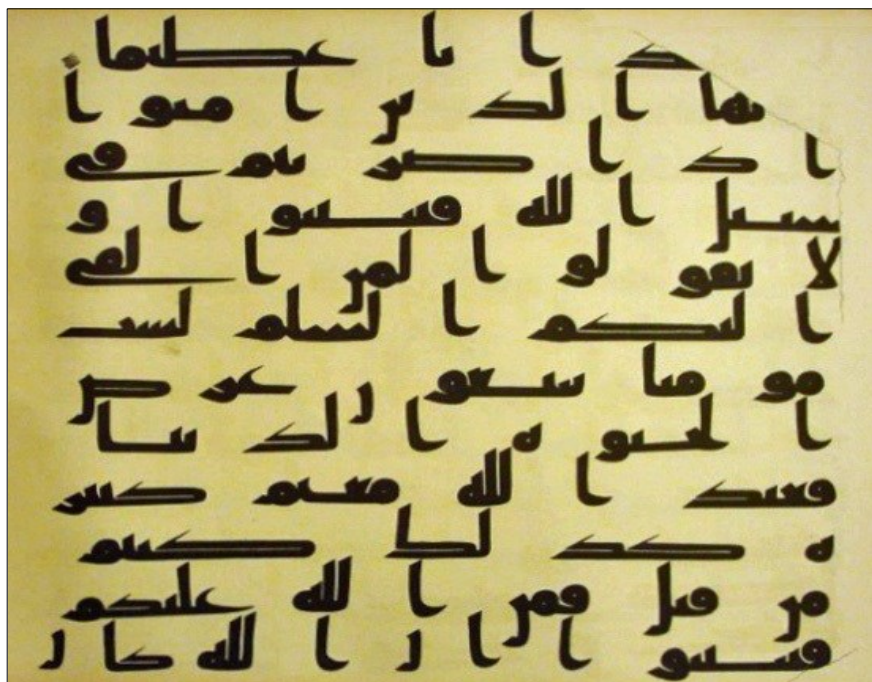 عذابا عظيما
يها الذين امنوا
اذا ضربتم في
سبيل الله فتبينوا و
لا تقولوا لمن القى
اليكم السلم لست
مومنا تبتغون عرض
الحيوة الدنيا
فعند الله مغنم كثير
ة كذلك كنتم
من قبل فمن الله عليكم
فتبينوا ان الله كان